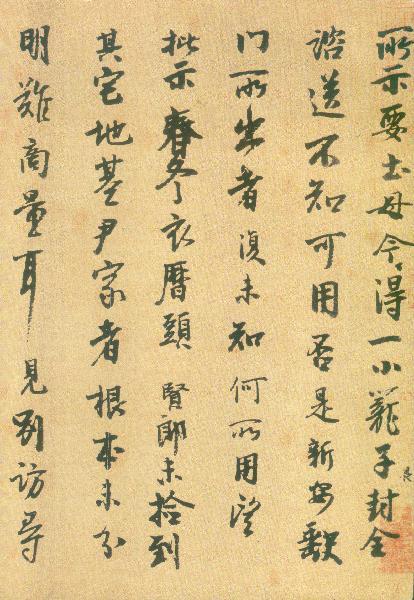 所示要土母今得一小籠子封全
諮送不知可用否是新安缺
門所出者復未知何所用望
批示春冬衣曆頭賢郎未拾到
其宅地基尹家者根本未分
明難商量耳見別訪尋